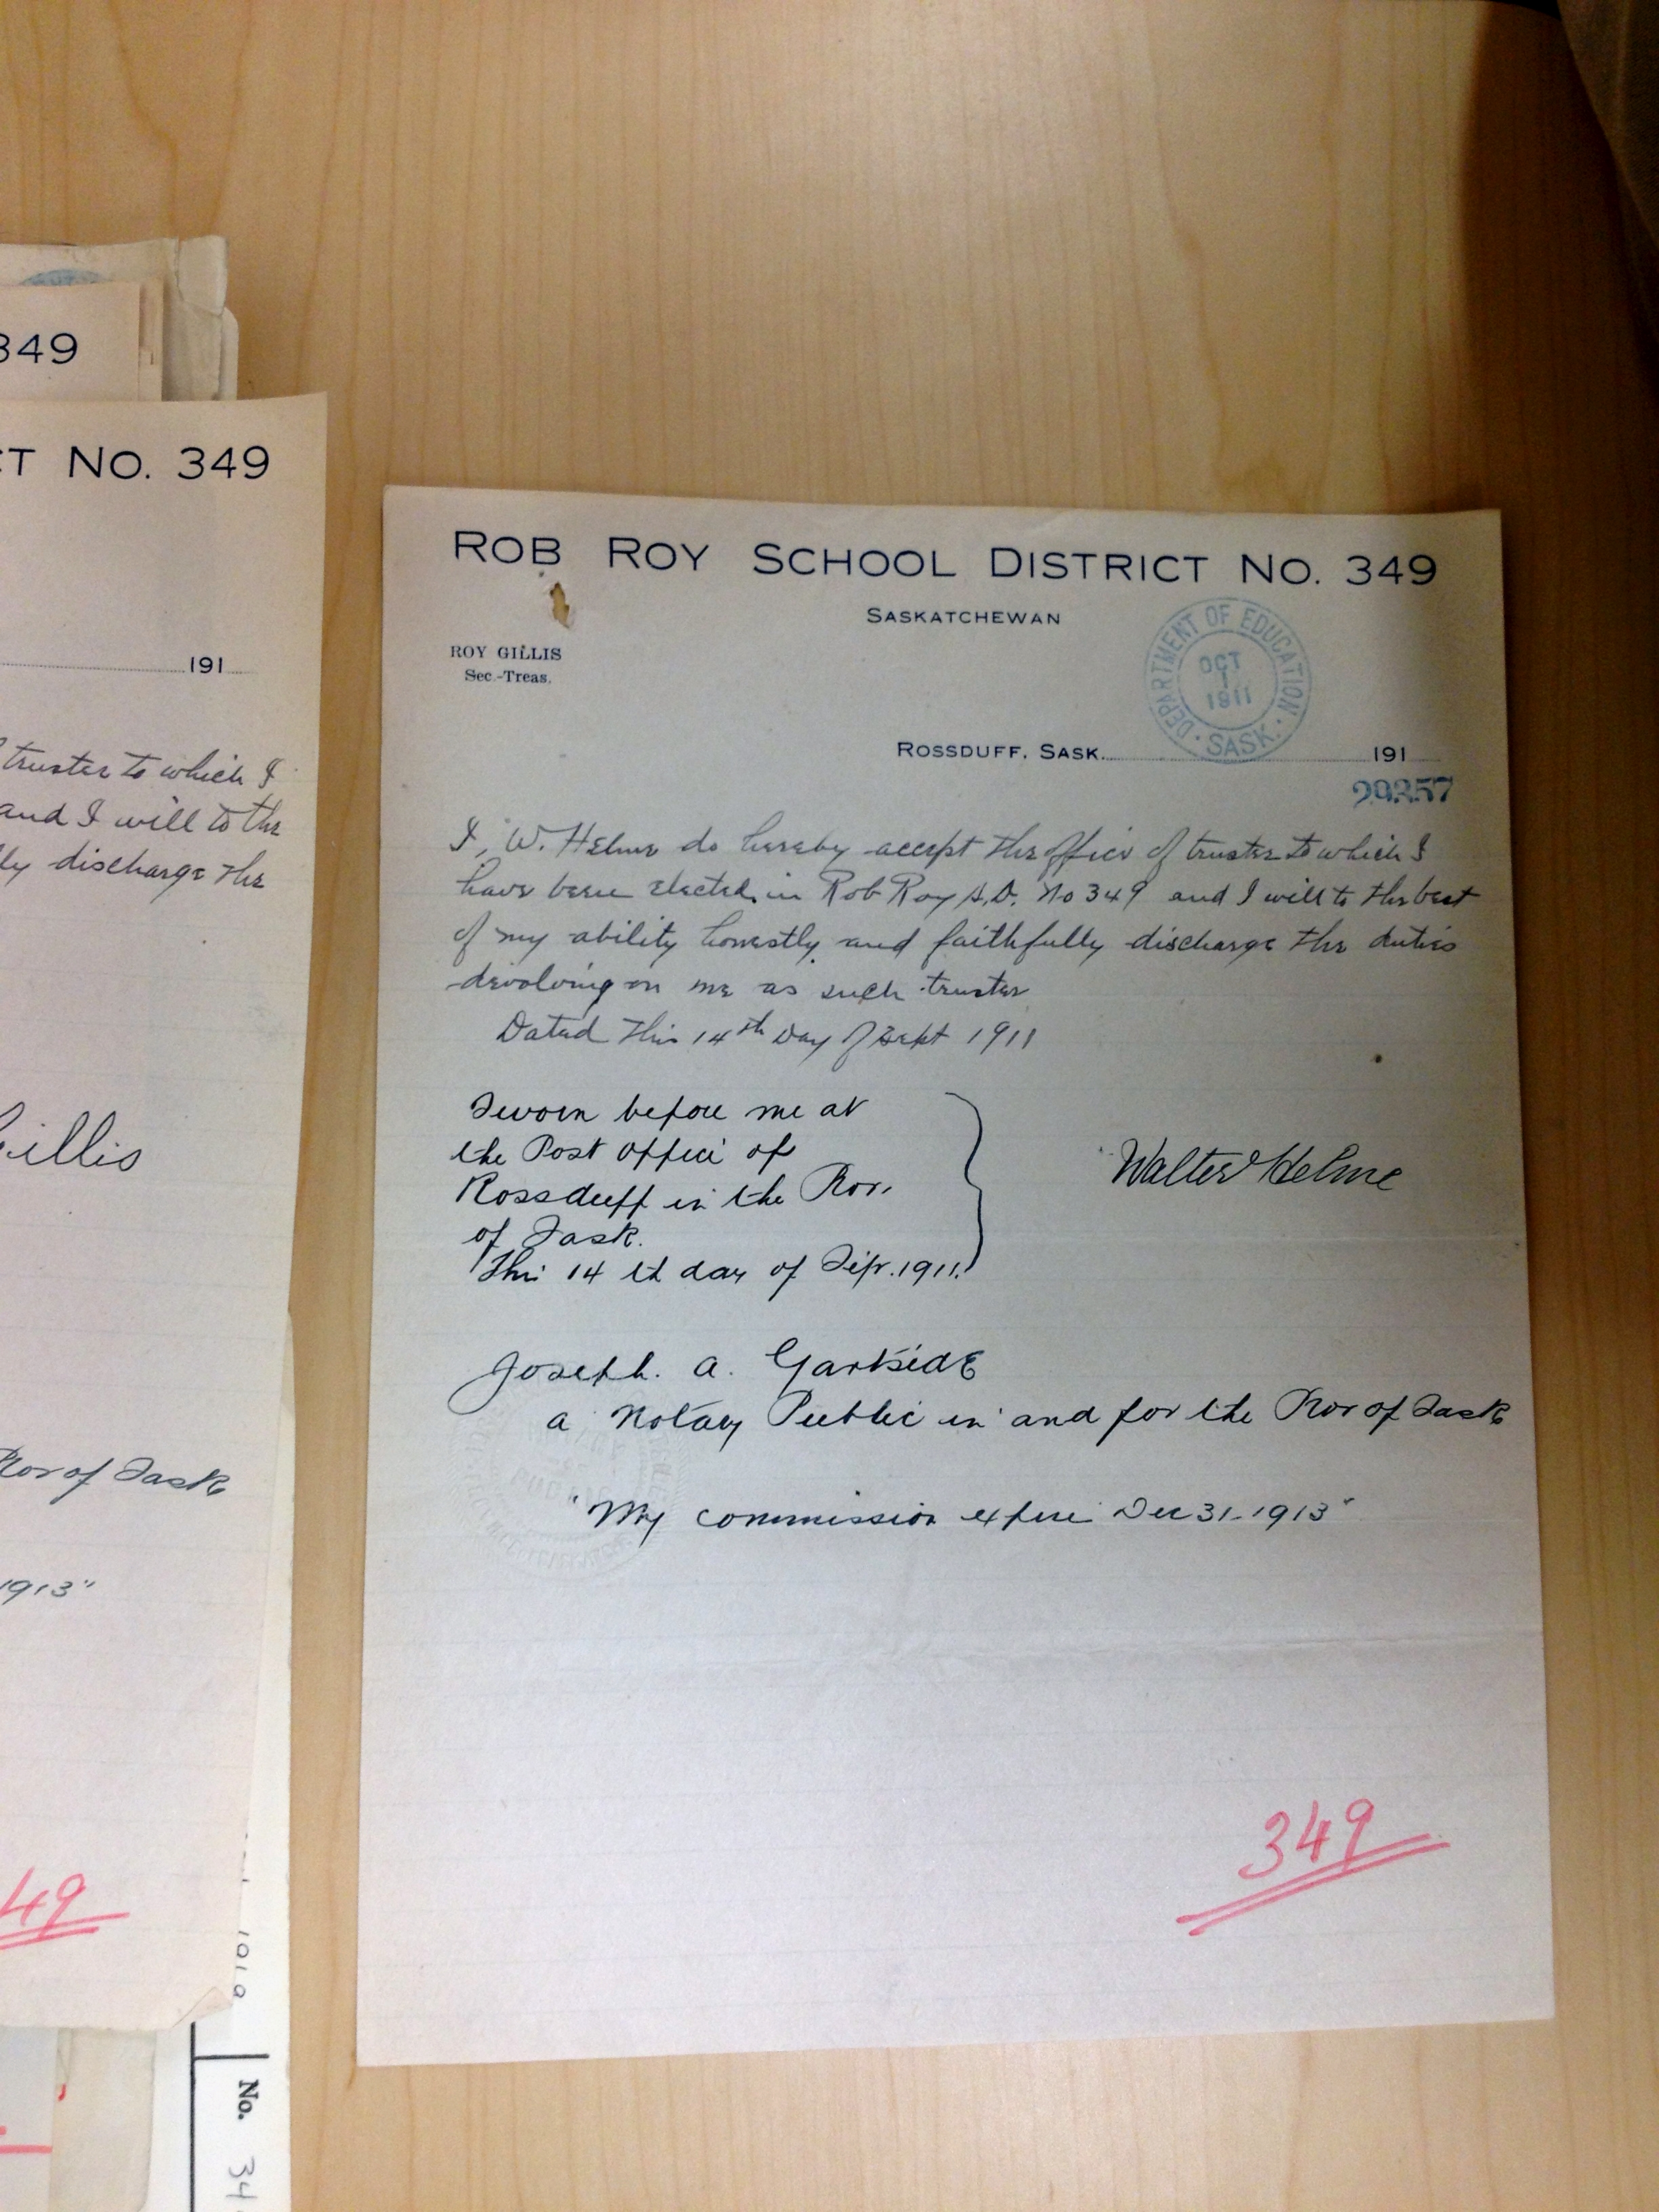 349
CT NO. 349
191
trustee to which I
and I will to the
ly discharge the
Gillis
Prov of Sask
1913"
49
No. 34
ROB ROY SCHOOL DISTRICT NO. 349
SASKATCHEWAN
ROY GILLIS
Sec.-Treas.
DEPARTMENT OF EDUCATION
OCT
1
1911
SASK.
ROSSDUFF, SASK. 191
29357
I, W. Helme do hereby accept the office of trustee to which I
have been elected in Rob Roy S.D. No 349 and I will to the best
of my ability honestly and faithfully discharge the duties
devolving on me as such trustee
Dated this 14th Day of Sept 1911
Sworn before me at
the Post office of
Rossduff in the Prov.
of Sask.
This 14 th day of Sept. 1911.
Walter Helme
Joseph. A. Gartside
a Notary Public in and for the Prov of Sask
"My commission expire Dec 31-1913"
349